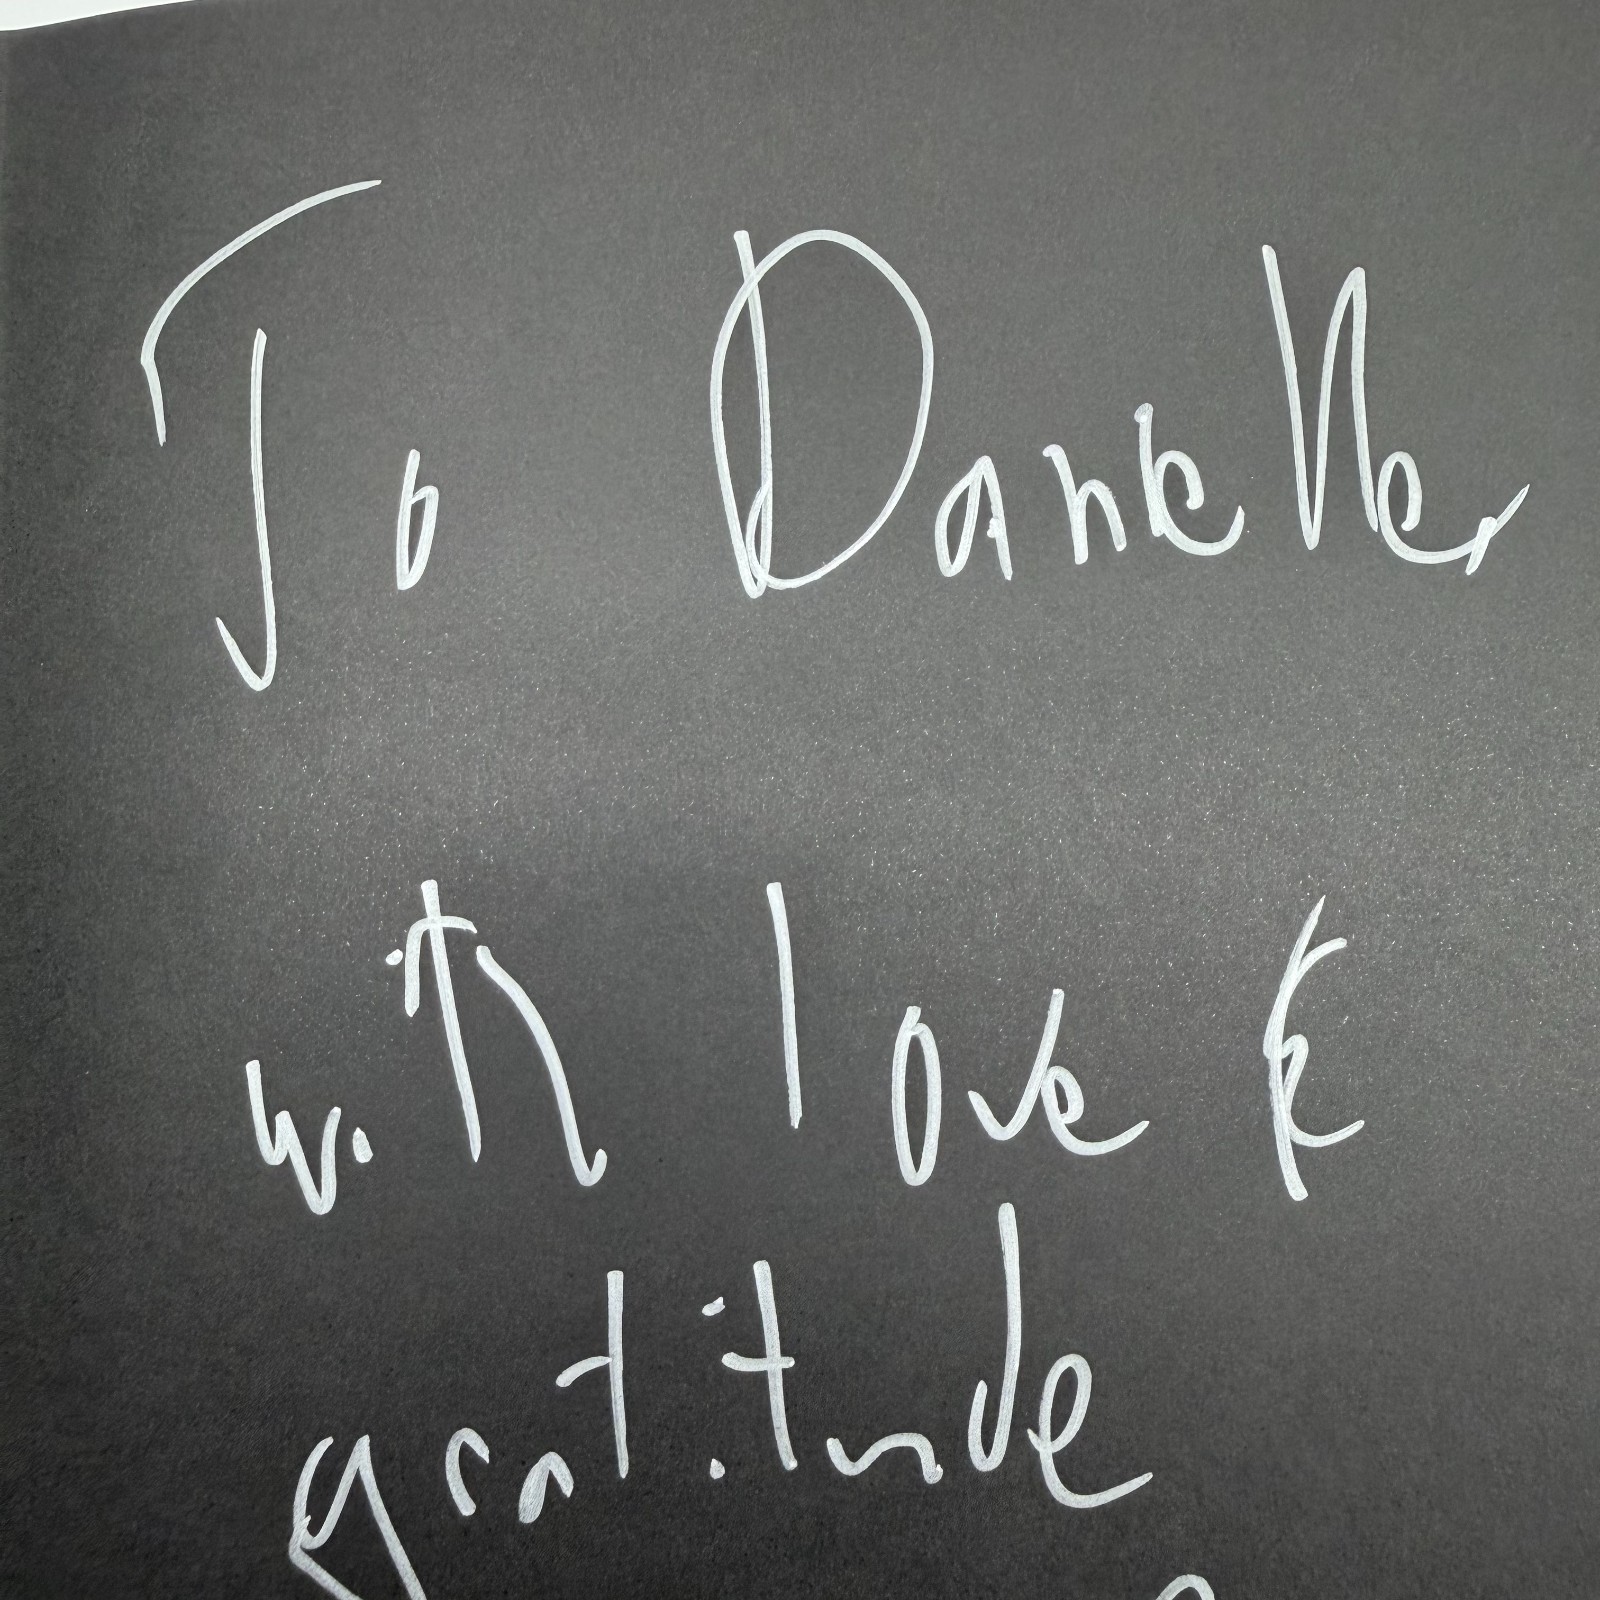 To Danielle,
with love &
gratitude